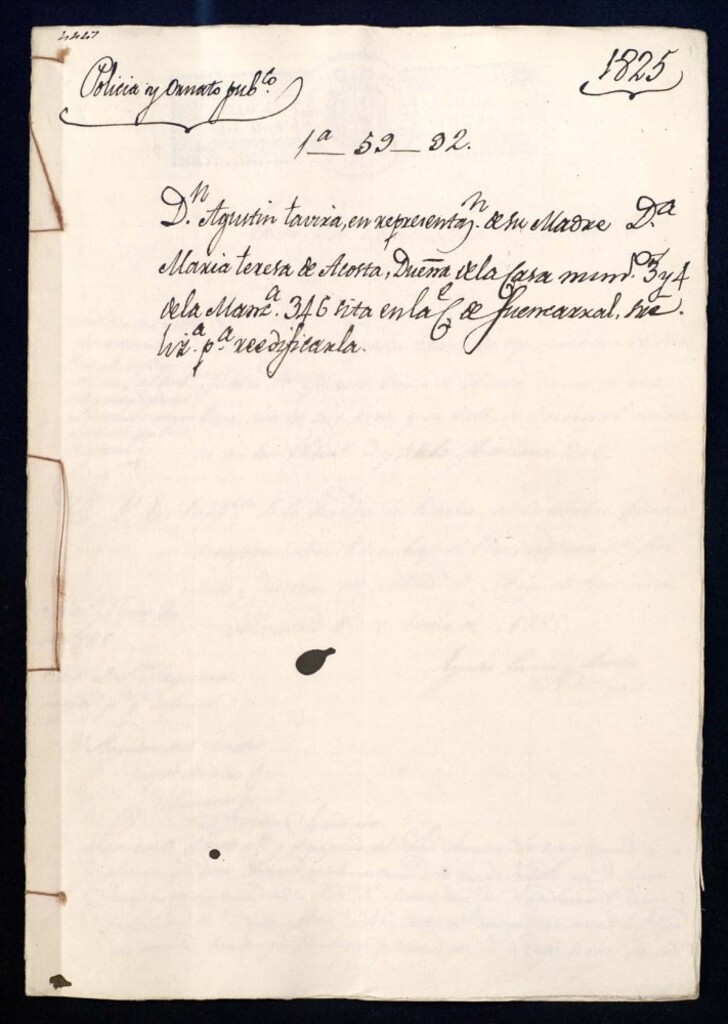 Policia y Ornato pub.co
1825
1a — 59 — 92.
D.n Agustin Tavira, en representaz.n de su Madre D.a
Maria Teresa de Acosta, Dueña de la Casa num.os 3 y 4
de la Manz.a 346 sita en la C.e de Fuencarral, sre.
liz.a p.a reedificarla.